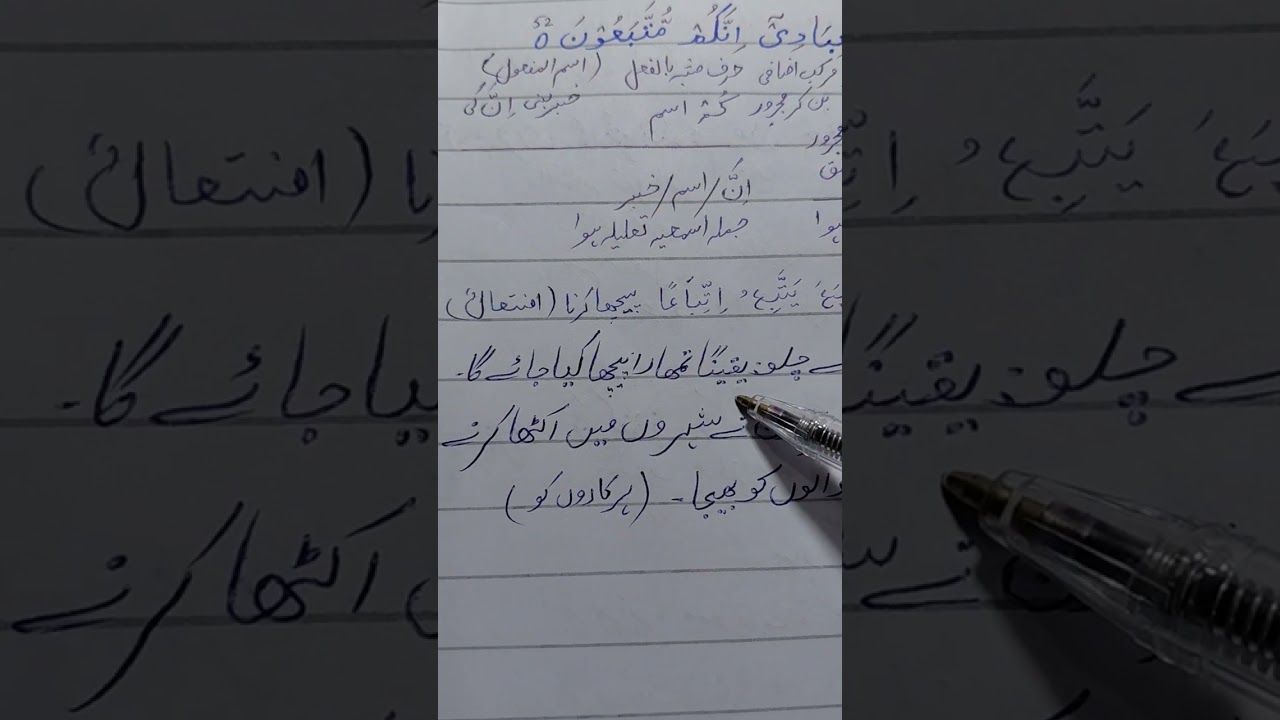 بِعِبَادِیْٓ اِنَّکُمْ مُّتَّبَعُوْنَ ٥٢
مرکب اضافی حرف مشبہ بالفعل (اسم المفعول)
بن کر مجرور کُمْ اسم خبر یعنی اِنَّ کی
مجرور
اِنَّ / اسم / خبر
ہوا جملہ اسمیہ تعلیلہ ہوا
یَتَّبِعُ اِتِّبَاعًا پیچھا کرنا (افتعال)
چلو یقینًا تمھارا پیچھا کیا جائے گا۔
نے شہروں میں اکٹھا کرنے
والوں کو بھیجا۔ (ہرکاروں کو)